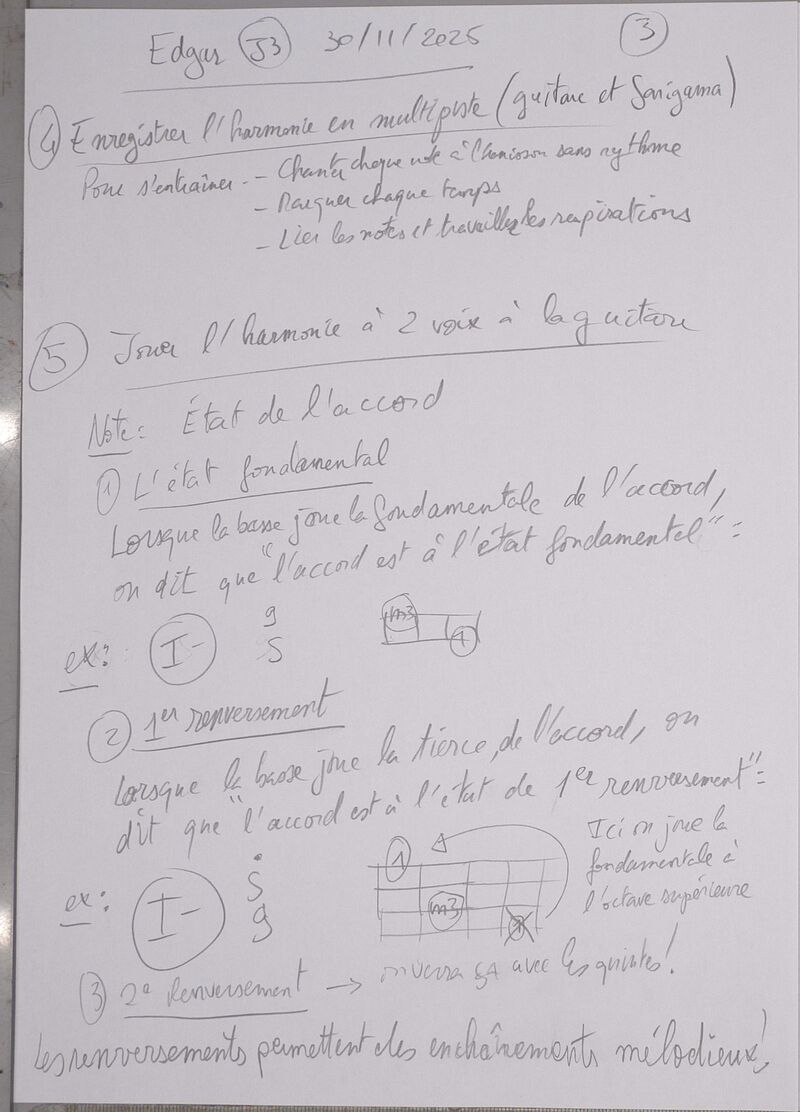 Edgar J3 30/11/2025 3
4 Enregistrer l'harmonie en multipiste (guitare et Sarigama)
Pour s'entraîner - Chanter chaque note à l'hunisson sans rythme
- Marquer chaque temps
- Lier les notes et travailler les respirations
5 Jouer l'harmonie à 2 voix à la guitare
Note: État de l'accord
1 L'état fondamental
Lorsque la basse joue la fondamentale de l'accord,
on dit que "l'accord est à l'état fondamental" =
ex: I- g
S
m3
1
2 1er renversement
Lorsque la basse joue la tierce, de l'accord, on
dit que "l'accord est à l'état de 1er renversement" =
ex: I- Ṡ
g
1
m3
1
Ici on joue la
fondamentale à
l'octave supérieure
3 2e Renversement → on verra ça avec les quintes!
Les renversements permettent des enchaînements mélodieux!